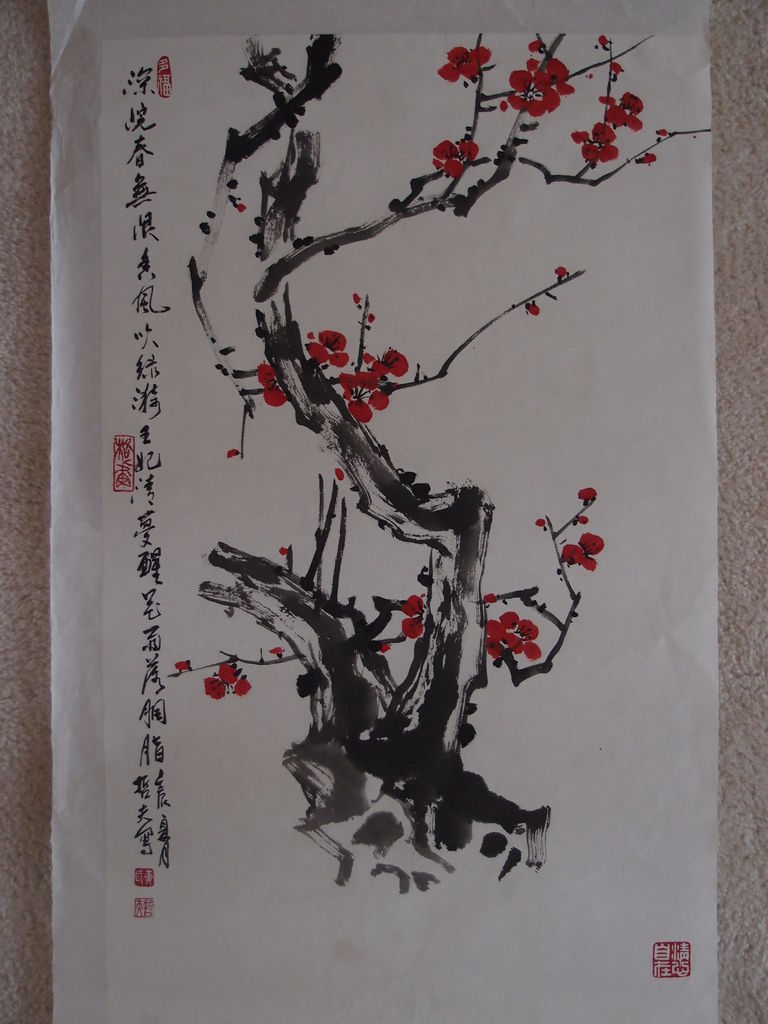 深院春無限香風吹綠漪玉妃清夢醒花雨落胭脂
哲夫寫
多福